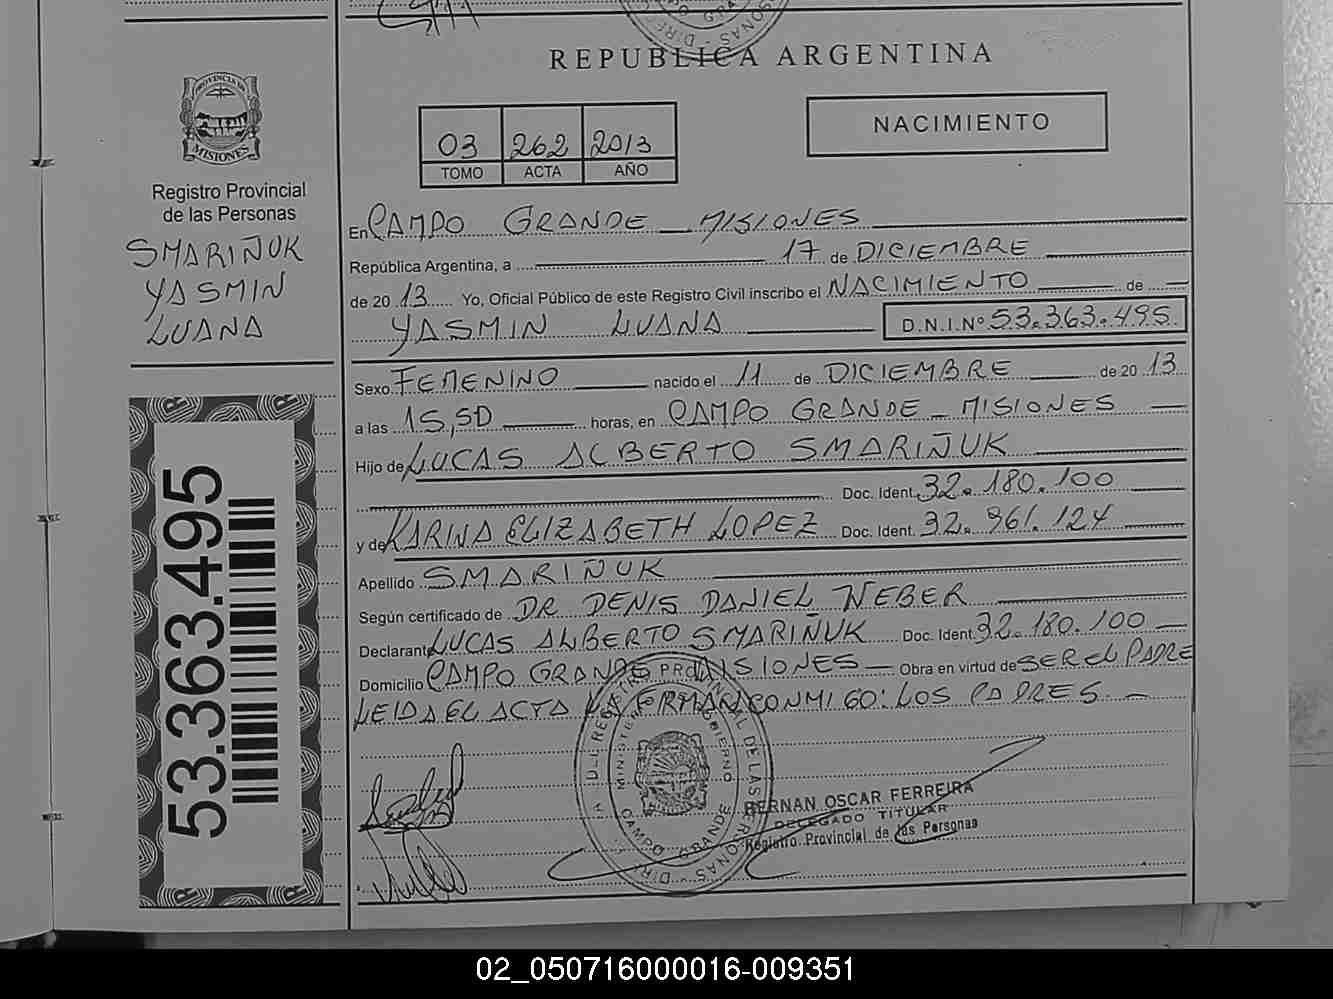 REPUBLICA ARGENTINA
PROVINCIA DE
MISIONES
Registro Provincial
de las Personas
SMARIÑUK
YASMIN
LUANA
53.363.495
03 262 2013
TOMO ACTA AÑO
NACIMIENTO
En CAMPO GRANDE MISIONES
República Argentina, a 17 de DICIEMBRE
de 2013 Yo, Oficial Público de este Registro Civil inscribo el NACIMIENTO de
YASMIN LUANA D.N.I.Nº 53.363.495
Sexo FEMENINO nacido el 11 de DICIEMBRE de 2013
a las 15,50 horas, en CAMPO GRANDE - MISIONES
Hijo de LUCAS ALBERTO SMARIÑUK
Doc. Ident. 32.180.100
y de KARINA ELIZABETH LOPEZ Doc. Ident. 32.961.124
Apellido SMARIÑUK
Según certificado de DR DENIS DANIEL WEBER
Declarante LUCAS ALBERTO SMARIÑUK Doc. Ident. 32.180.100
Domicilio CAMPO GRANDE MISIONES Obra en virtud de SER EL PADRE
LEIDA EL ACTA LA FIRMAN CONMIGO: LOS PADRES
HERNAN OSCAR FERREIRA
DELEGADO TITULAR
Registro Provincial de las Personas
CAMPO GRANDE
02_050716000016-009351